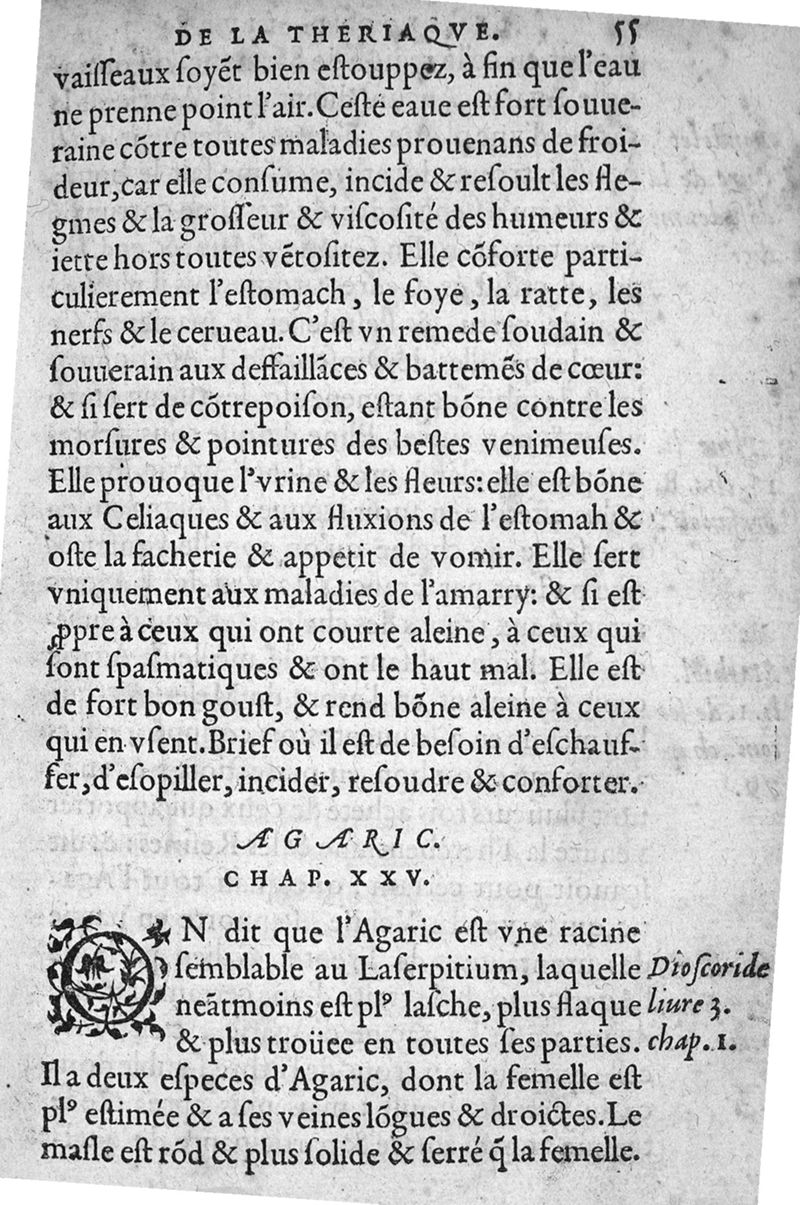 DE LA THERIAQVE. 55
vaiſſeaux ſoyẽt bien eſtouppez, à fin que l'eau
ne prenne point l'air. Ceſté eaue eſt fort ſouue-
raine cõtre toutes maladies prouenans de froi-
deur, car elle conſume, incide & reſoult les fle-
gmes & la groſſeur & viſcoſité des humeurs &
iette hors toutes vẽtoſitez. Elle cõforte parti-
culierement l'eſtomach, le foye, la ratte, les
nerfs & le cerueau. C'eſt vn remede ſoudain &
ſouuerain aux deffaillãces & battemẽs de cœur:
& ſi ſert de cõtrepoiſon, eſtant bõne contre les
morſures & pointures des beſtes venimeuſes.
Elle prouoque l'vrine & les fleurs: elle eſt bõne
aux Celiaques & aux fluxions de l'eſtomah &
oſte la facherie & appetit de vomir. Elle ſert
vniquement aux maladies de l'amarry: & ſi eſt
ꝓpre à ceux qui ont courte aleine, à ceux qui
ſont ſpaſmatiques & ont le haut mal. Elle eſt
de fort bon gouſt, & rend bõne aleine à ceux
qui en vſent. Brief où il eſt de beſoin d'eſchauf-
fer, d'eſopiller, incider, reſoudre & conforter.
AGARIC.
CHAP. XXV.
ON dit que l'Agaric eſt vne racine
ſemblable au Laſerpitium, laquelle Dioſcoride
neãtmoins eſt plꝰ laſche, plus flaque liure 3.
& plus troüee en toutes ſes parties. chap. 1.
Il a deux eſpeces d'Agaric, dont la femelle eſt
plꝰ eſtimée & a ſes veines lõgues & droictes. Le
maſle eſt rõd & plus ſolide & ſerré q̃ la femelle.